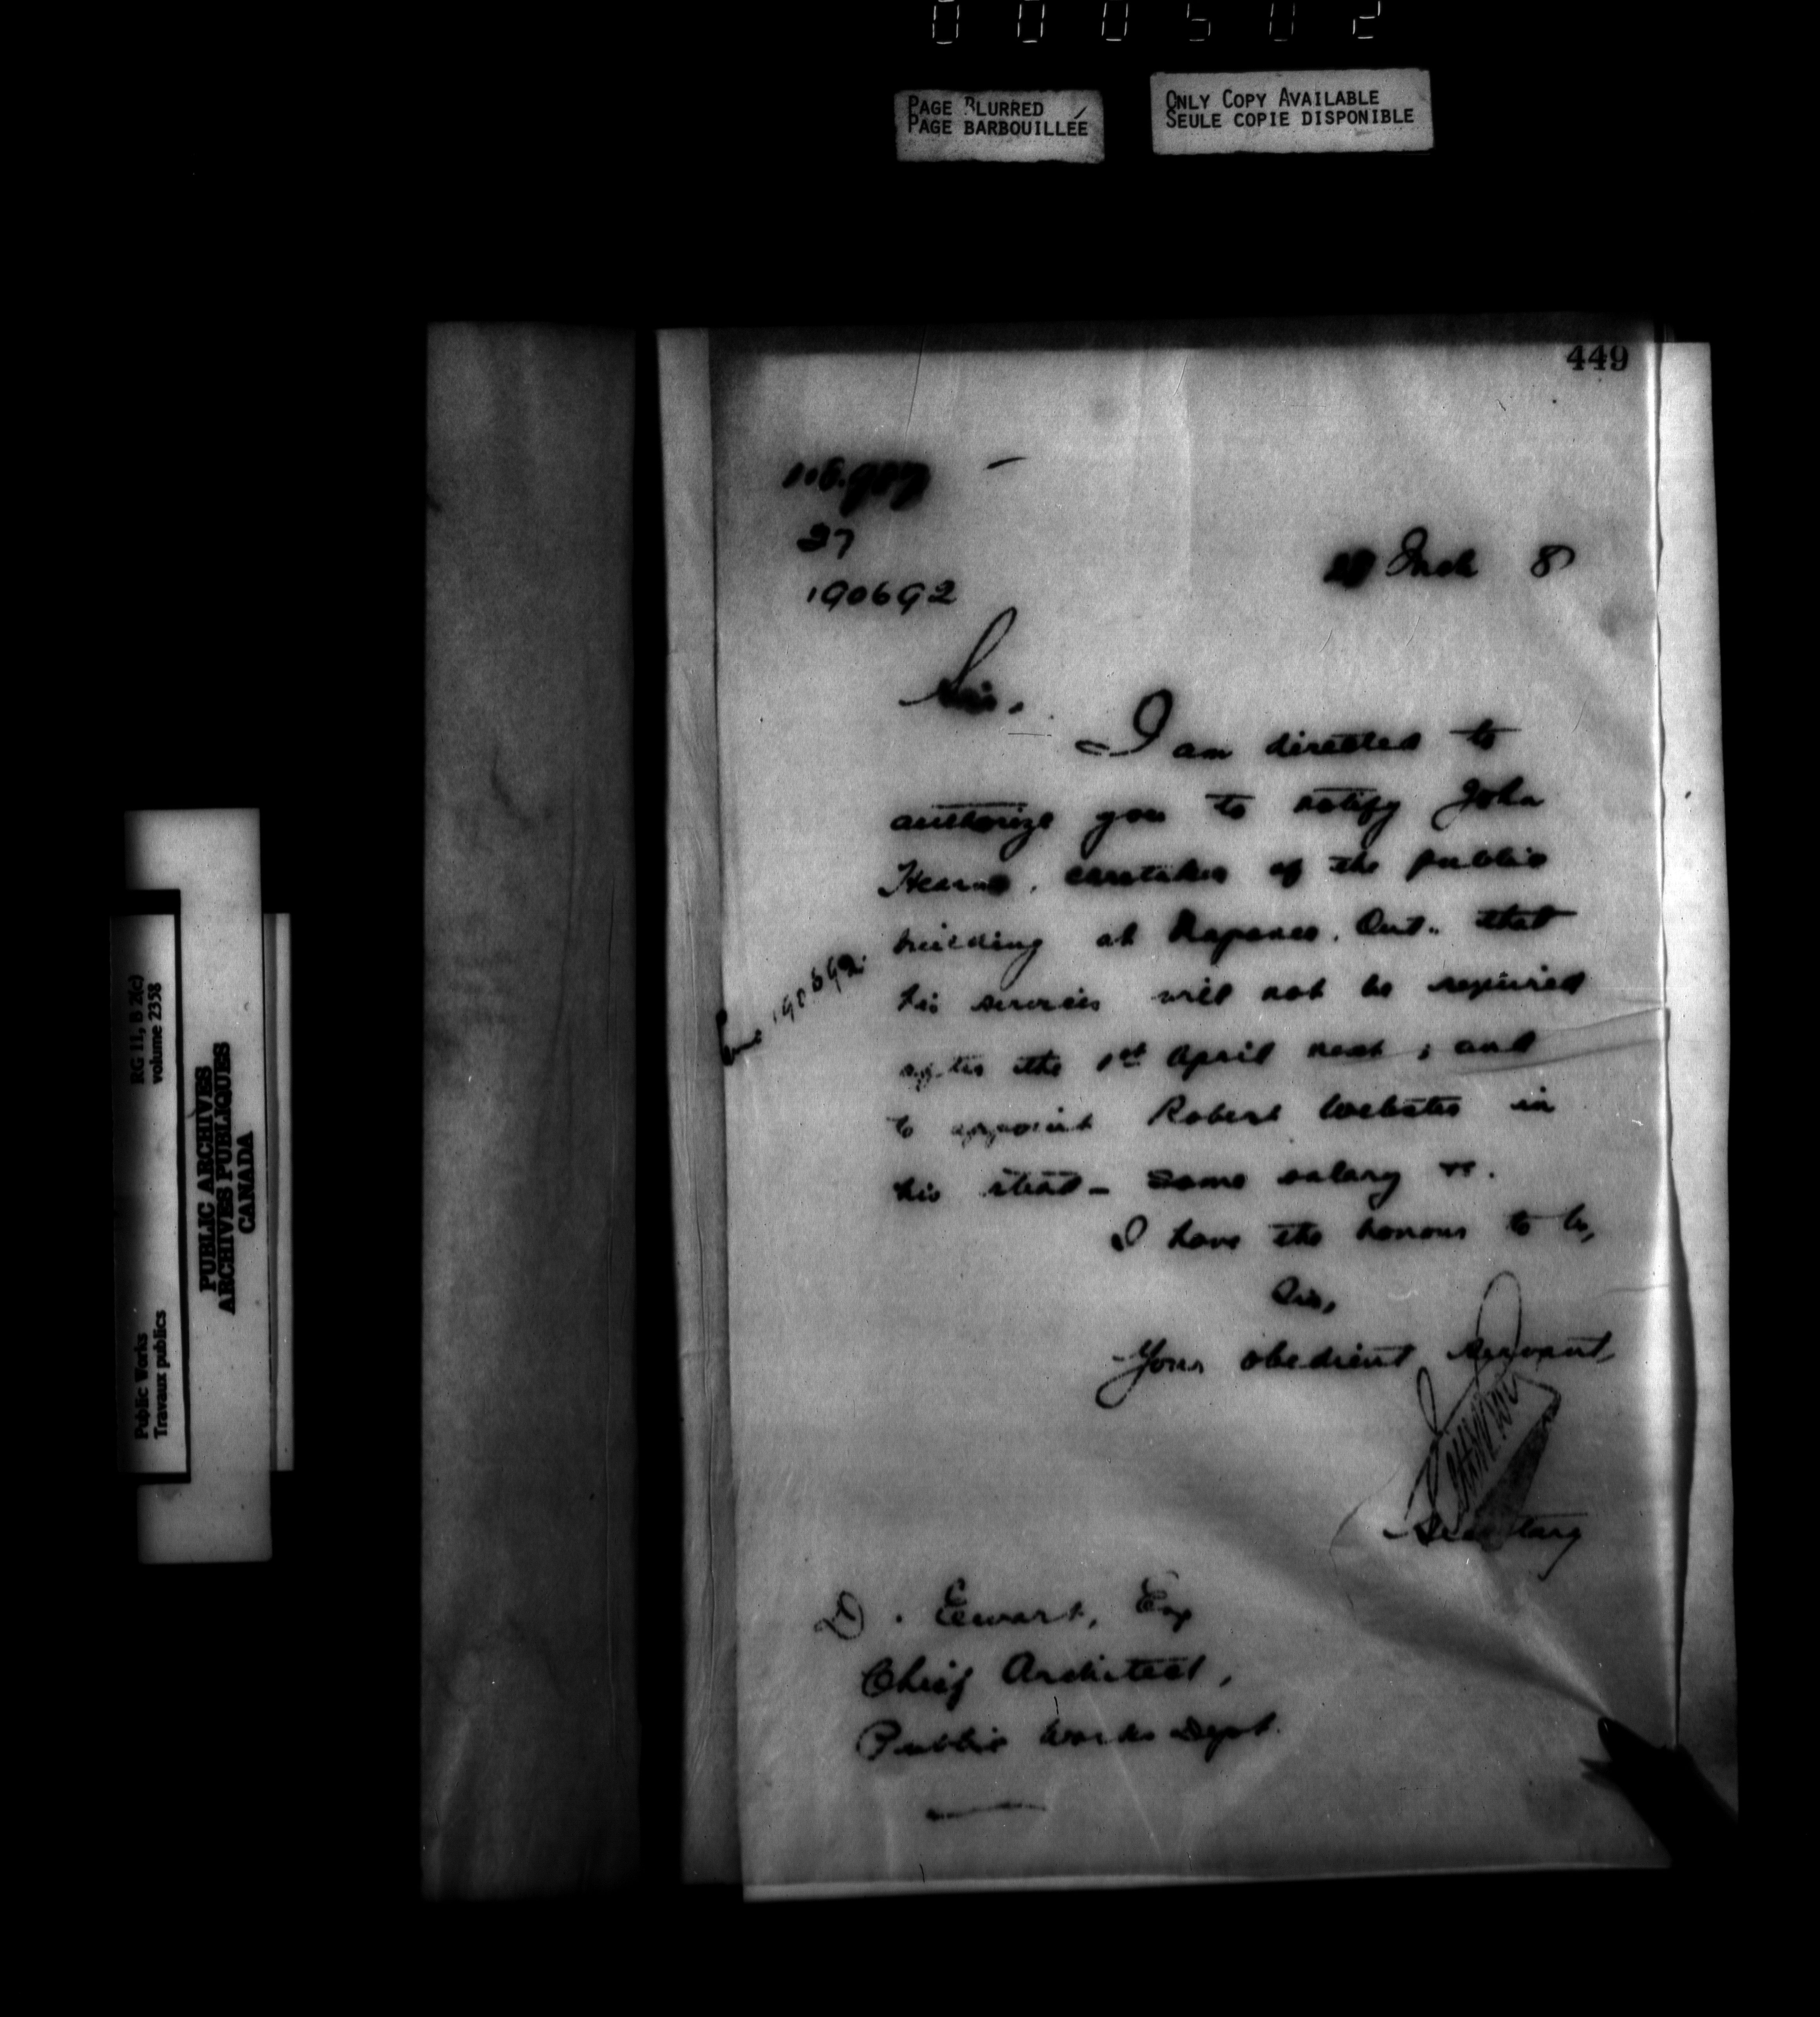 000502
PAGE BLURRED
PAGE BARBOUILLÉE
ONLY COPY AVAILABLE
SEULE COPIE DISPONIBLE
449
27
190692
Mch 8
Sir,
I am directed to
authorize you to notify John
Hearns, caretaker of the public
building at Napanee, Ont., that
his services will not be required
after the 1st April next; and
to appoint Robert Webster in
his stead - same salary &c.
190692
I have the honour to be,
Sir,
Your obedient servant,
Secretary
D. Ewart, Esq
Chief Architect,
Public Works Dept.
RG 11, B 2(c)
volume 2358
Public Works
Travaux publics
PUBLIC ARCHIVES
ARCHIVES PUBLIQUES
CANADA